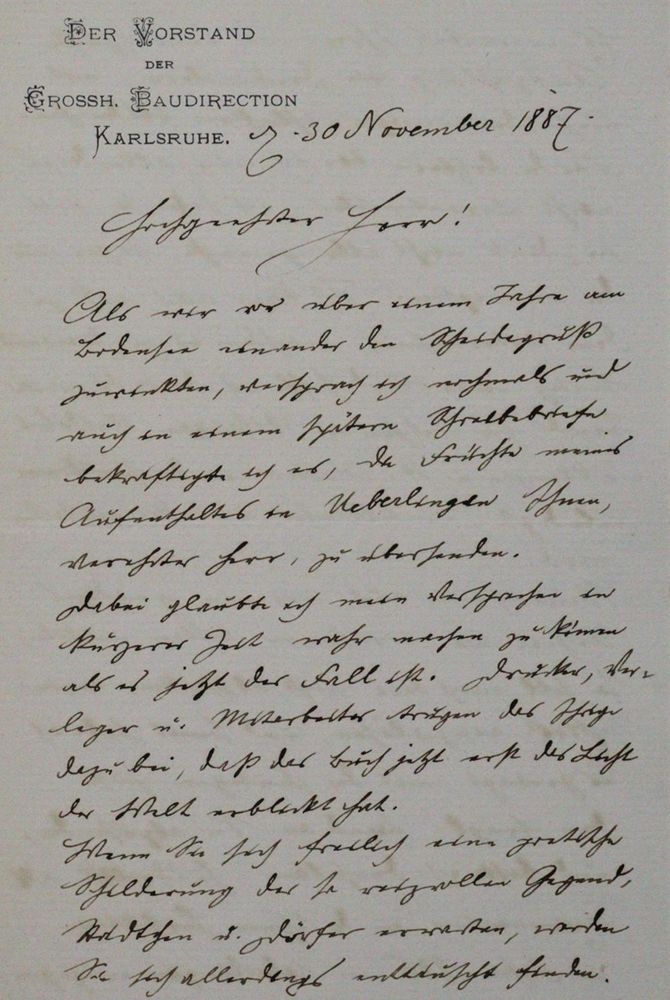 DER VORSTAND
DER
GROSSH. BAUDIRECTION
KARLSRUHE, 30 November 1887.
Hochgeehrter Herr!
Als wir vor über einem Jahre am
Bodensee einander den Scheidegruß
zuwinkten, versprach ich nochmals und
auch in einem spätern Schreibebriefe
bekräftigte ich es, die Früchte meines
Aufenthaltes in Ueberlingen Ihnen,
verehrter Herr, zu übersenden.
Dabei glaubte ich mein Versprechen in
kürzerer Zeit wahr machen zu können
als es jetzt der Fall ist. Drucker, Ver-
leger u. Mitarbeiter trugen das Ihrige
dazu bei, daß das Buch jetzt erst das Licht
der Welt erblickt hat.
Wenn Sie sich freilich eine poetische
Schilderung der so reizvollen Gegend,
Städtchen u. Dörfer erwarten, werden
Sie sich allerdings enttäuscht finden.